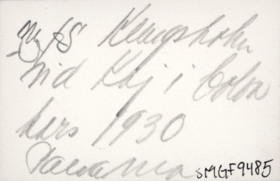 M/S Kungsholm
vid Kaj i Colon
mars 1930
Panama
SMGF9485